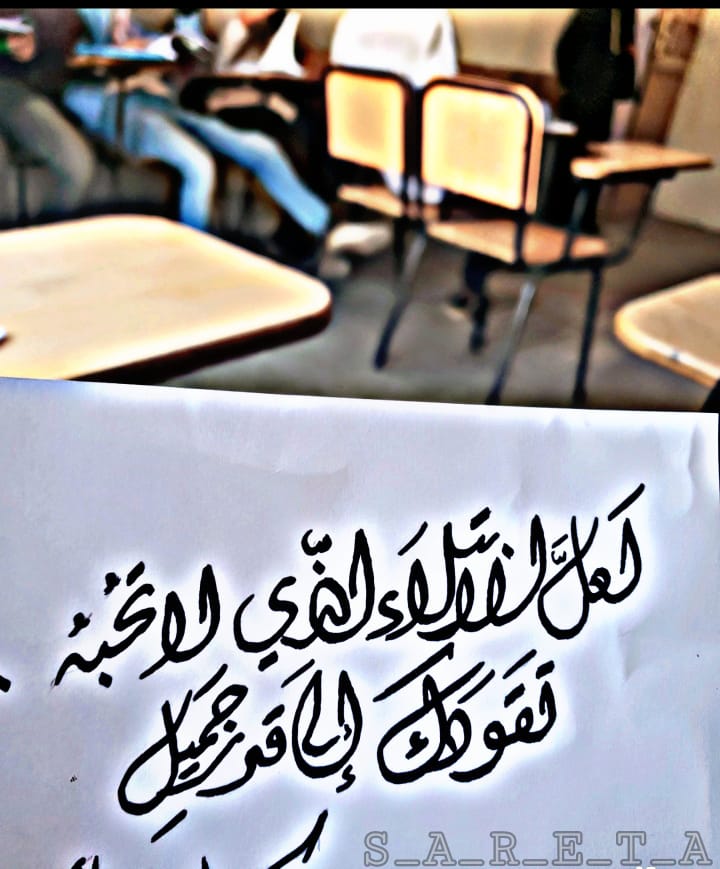 لَعلَّ الابتَلَاء الذّي لا تُحُبهُ
تَقَودَكَ إلىَ قدر جَميَلِ
S_A_R_E_T_A